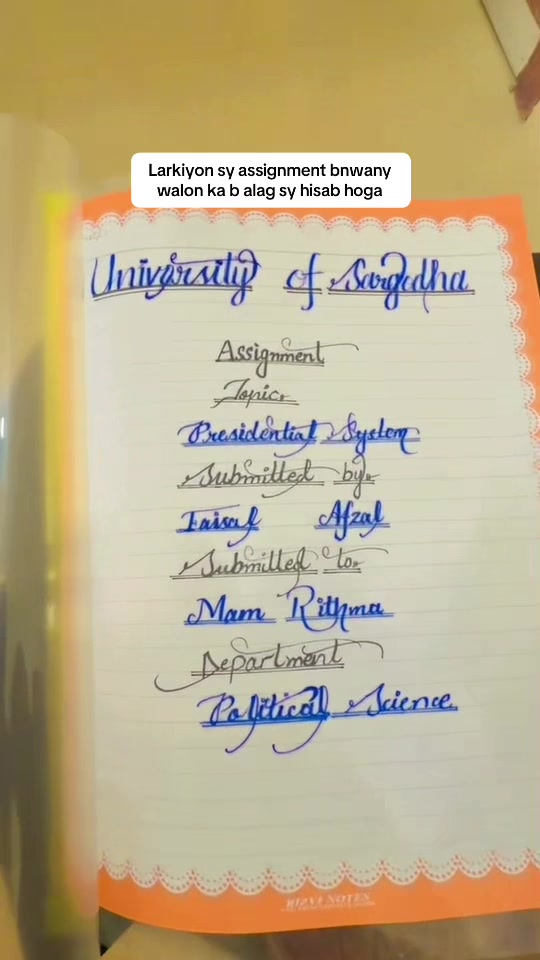 Larkiyon sy assignment bnwany
walon ka b alag sy hisab hoga
University of Sargodha
Assignment
Topic
Presidential System
Submitted by
Faisal Afzal
Submitted to
Mam Rithma
Department
Political Science
RIZVI NOTES